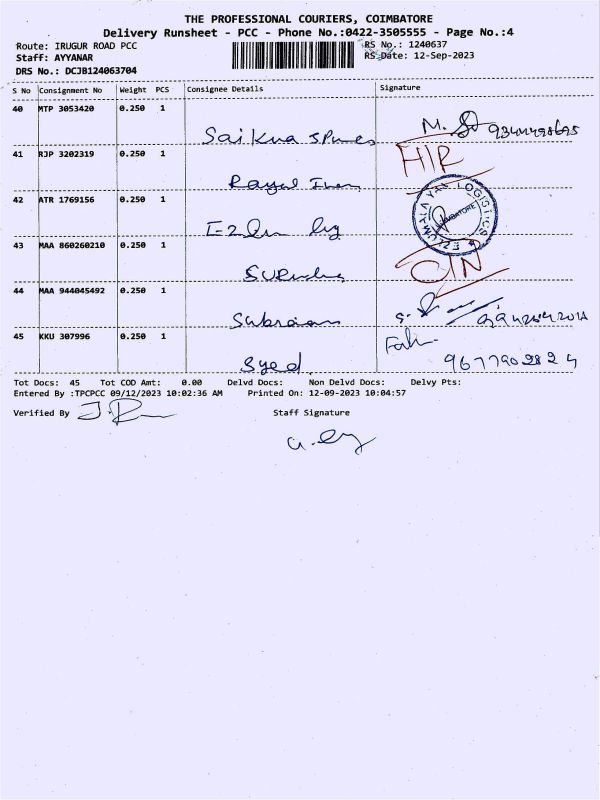 THE PROFESSIONAL COURIERS, COIMBATORE
Delivery Runsheet - PCC - Phone No.:0422-3505555 - Page No.:4
Route: IRUGUR ROAD PCC
RS No.: 1240637
Staff: AYYANAR
RS Date: 12-Sep-2023
DRS No.: DCJB124063704
S No Consignment No Weight PCS Consignee Details Signature
40 MTP 3053420 0.250 1
Sai Kna M. 9344498695
41 RJP 3202319 0.250 1
HIR
Rayal
42 ATR 1769156 0.250 1
EZLUMALAYAN LOGISTICS
COIMBATORE
43 MAA 860260210 0.250 1
OIN
44 MAA 944045492 0.250 1
45 KKU 307996 0.250 1
Syed 9677902824
Tot Docs: 45 Tot COD Amt: 0.00 Delvd Docs: Non Delvd Docs: Delvy Pts:
Entered By :TPCPCC 09/12/2023 10:02:36 AM Printed On: 12-09-2023 10:04:57
Verified By Staff Signature